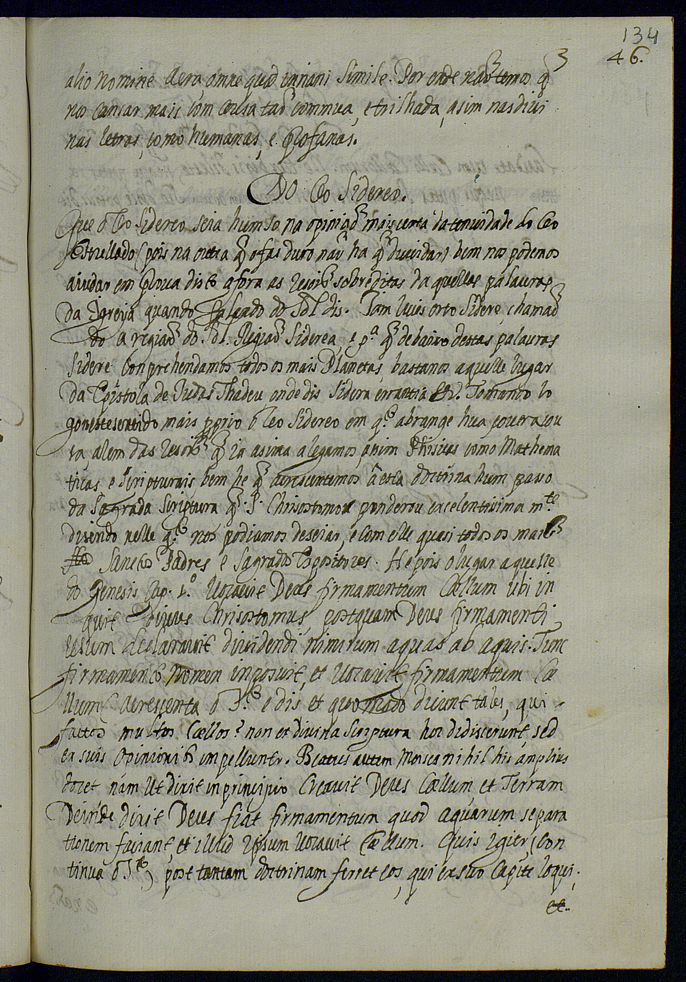 134
46.
alio nomine Aera omne quod inani Simile. Por onde naõ temos q̃
nos cansar mais com cousa taõ commua, e trilhada, asim nas divi
nas letras, como humanas, e Profanas.
Do Ceo Sidereo.
Que o Ceo Sidereo seia hum so na opiniaõ mais certa da tenuidade do Ceo
Estrellado (pois na outra q̃ o fas duro naũ ha q̃ duvidar) bem nos podemos
aiudar em prova disto afora as resoĩs sobreditas daquellas palauras
da Igreia quando falando do Sol dis. Iam lucis orto Sidere, chamad
do a regiaõ do Sol Regiaõ Siderea e p.ª q̃ debaixo destas palauras
Sidere Comprehendamos todos os mais Planetas bastanos aquelle lugar
da Epistola de Judas Thadeu onde dis Sidera errantia &c. Tomando lo
go neste sentido mais pprio o Ceo Sidereo em q.to abrange hua cousa e ou
tra alem das resoĩs q̃ ia asima alegamos, asim Phisicas como Mathema
ticas, e Scripturais bem he q̃ acresentemos a esta doctrina hum passo
da Sagrada Scriptura q̃ S. Chrisostomo ponderou excelentissima m.te
disendo nelle q.to nos podiamos deseiar, e com elle quasi todos os mais
Sanctos Padres e Sagrados Expositores. He pois o lugar aquelle
do Genesis Cap. 1.º Vocavit Deus firmamentum Cœllum ubi in
quit Divus Chrisostomus, postquam Deus firmamenti
usum declaravit dividendi nimirum aquas ab aquis. Tunc
firmamento nomen imposuit, et Vocavit firmamentum Cœ
llum. acresenta o S.to e dis et quomodo dicunt tales, qui
factos multos Cœllos? non ex divina Scriptura hoc didiscerunt sed
ex suis Opinionib. impelluntr. Beatus autem Moises nihil his amplius
docet nam Ut dixit in principio Creavit Deus Cœllum et Terram
Deinde dixit Deus fiat firmamentum quod aquarum separa
tionem faciant, et illud ipsum Vocavit Cœllum. Quis igitr, (con
tinua o S.to) post tantam doctrinam ferret eos, qui ex suo Capite loqui.
&.